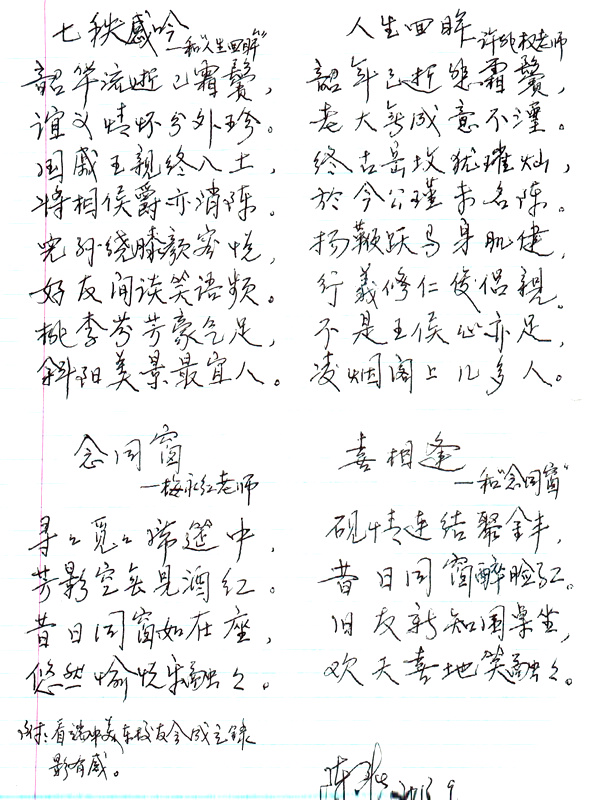 七秩感吟
—和"人生回眸"
韶华流逝已霜鬓，
谊义情怀分外珍。
国戚王亲终入土，
将相侯爵亦消陈。
儿孙绕膝颜容悦，
好友闲谈笑语频。
桃李芬芳豪气足，
斜阳美景最宜人。
人生回眸
—许纯权老师
韶年已逝染霜鬓，
老大无成意不湮。
终古岳坟犹璀灿，
於今公瑾未名陈。
扬鞭跃马身肌健，
行義修仁俊侣親。
不是王侯心亦足，
凌烟阁上几多人。
念同窗
—梅永红老师
寻々觅々席筵中，
芳影空无见酒红。
昔日同窗如在座，
悠然愉悦乐融々。
附：看端中美东校友会成立录
影有感。
喜相逢
—和"念同窗"
砚情连结聚金丰，
昔日同窗醉脸红。
旧友新知围桌坐，
欢天喜地笑融々。
陈
2013 9